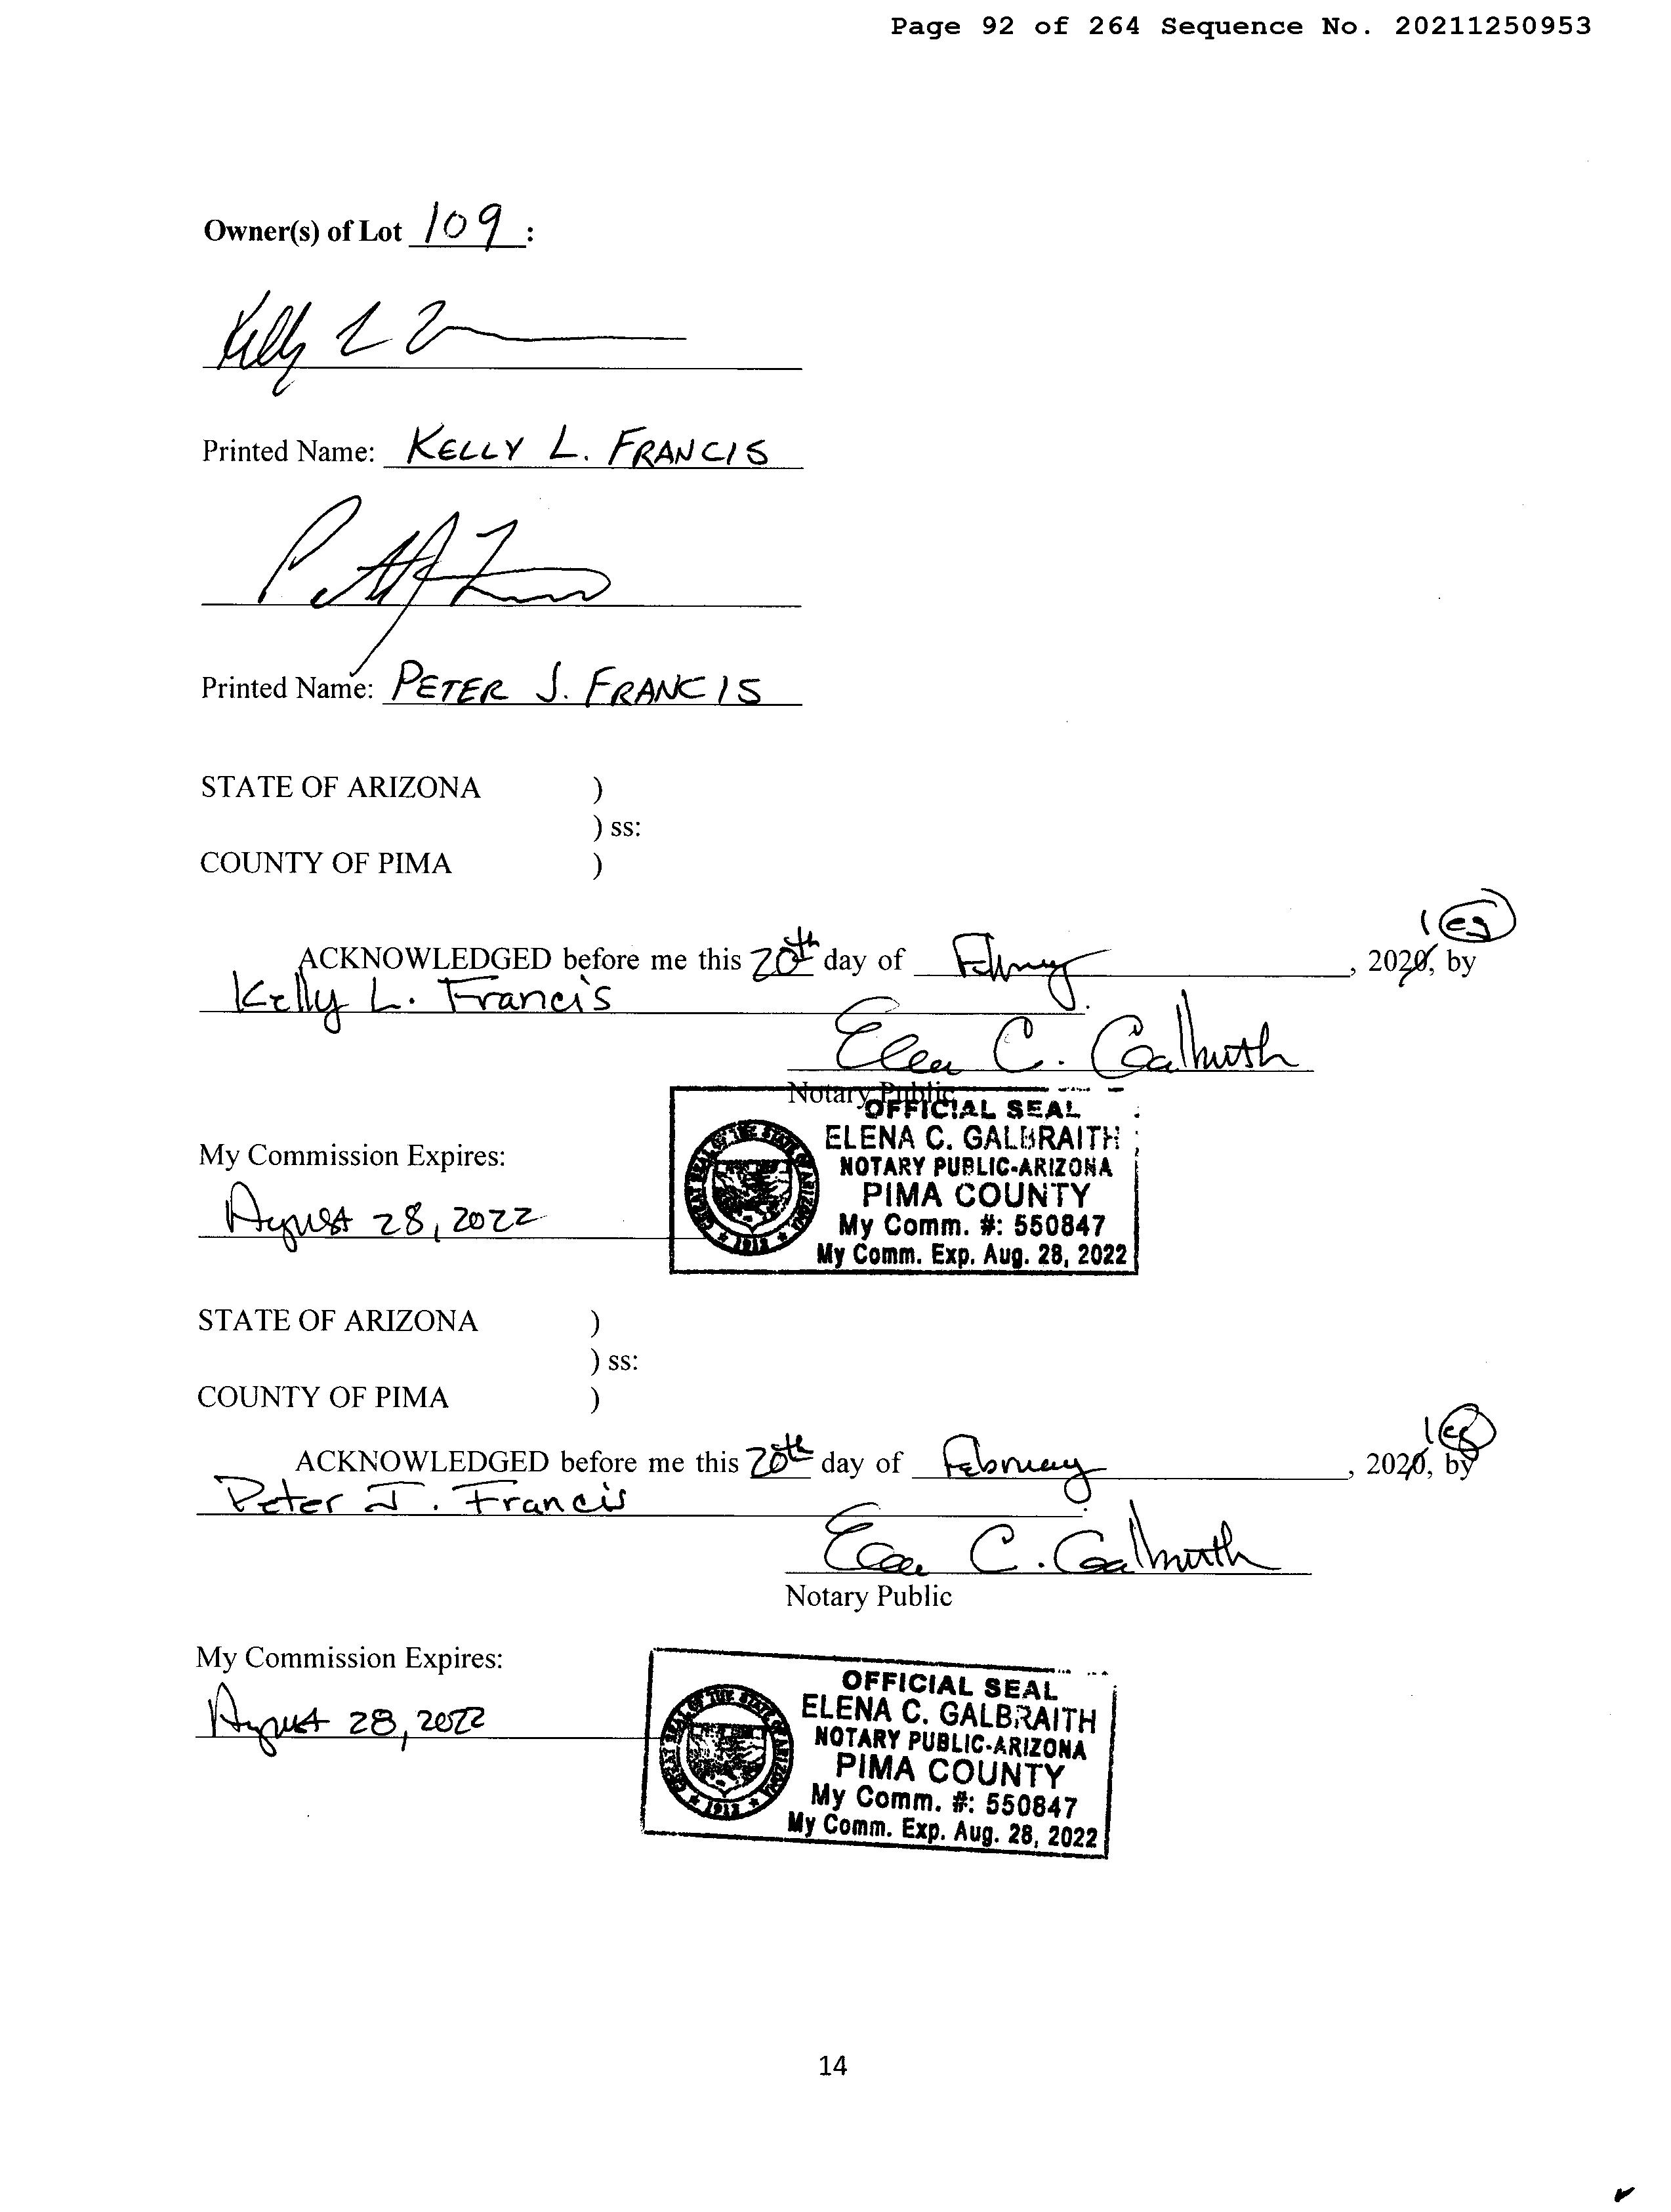 Page 92 of 264 Sequence No. 20211250953
Owner(s) of Lot 109 :
Kelly L
Printed Name: KELLY L. FRANCIS
Printed Name: PETER J. FRANCIS
STATE OF ARIZONA )
) ss:
COUNTY OF PIMA )
1 eg
ACKNOWLEDGED before me this 20th day of February, 2020, by
Kelly L. Francis
Elena C. Galbraith
Notary Public
OFFICIAL SEAL
ELENA C. GALBRAITH
NOTARY PUBLIC-ARIZONA
PIMA COUNTY
My Comm. #: 550847
My Comm. Exp. Aug. 28, 2022
GREAT SEAL OF THE STATE OF ARIZONA
1912
My Commission Expires:
August 28, 2022
STATE OF ARIZONA )
) ss:
COUNTY OF PIMA )
1 eg
ACKNOWLEDGED before me this 20th day of February, 2020, by
Peter J. Francis
Elena C. Galbraith
Notary Public
My Commission Expires:
August 28, 2022
OFFICIAL SEAL
ELENA C. GALBRAITH
NOTARY PUBLIC-ARIZONA
PIMA COUNTY
My Comm. #: 550847
My Comm. Exp. Aug. 28, 2022
GREAT SEAL OF THE STATE OF ARIZONA
1912
14